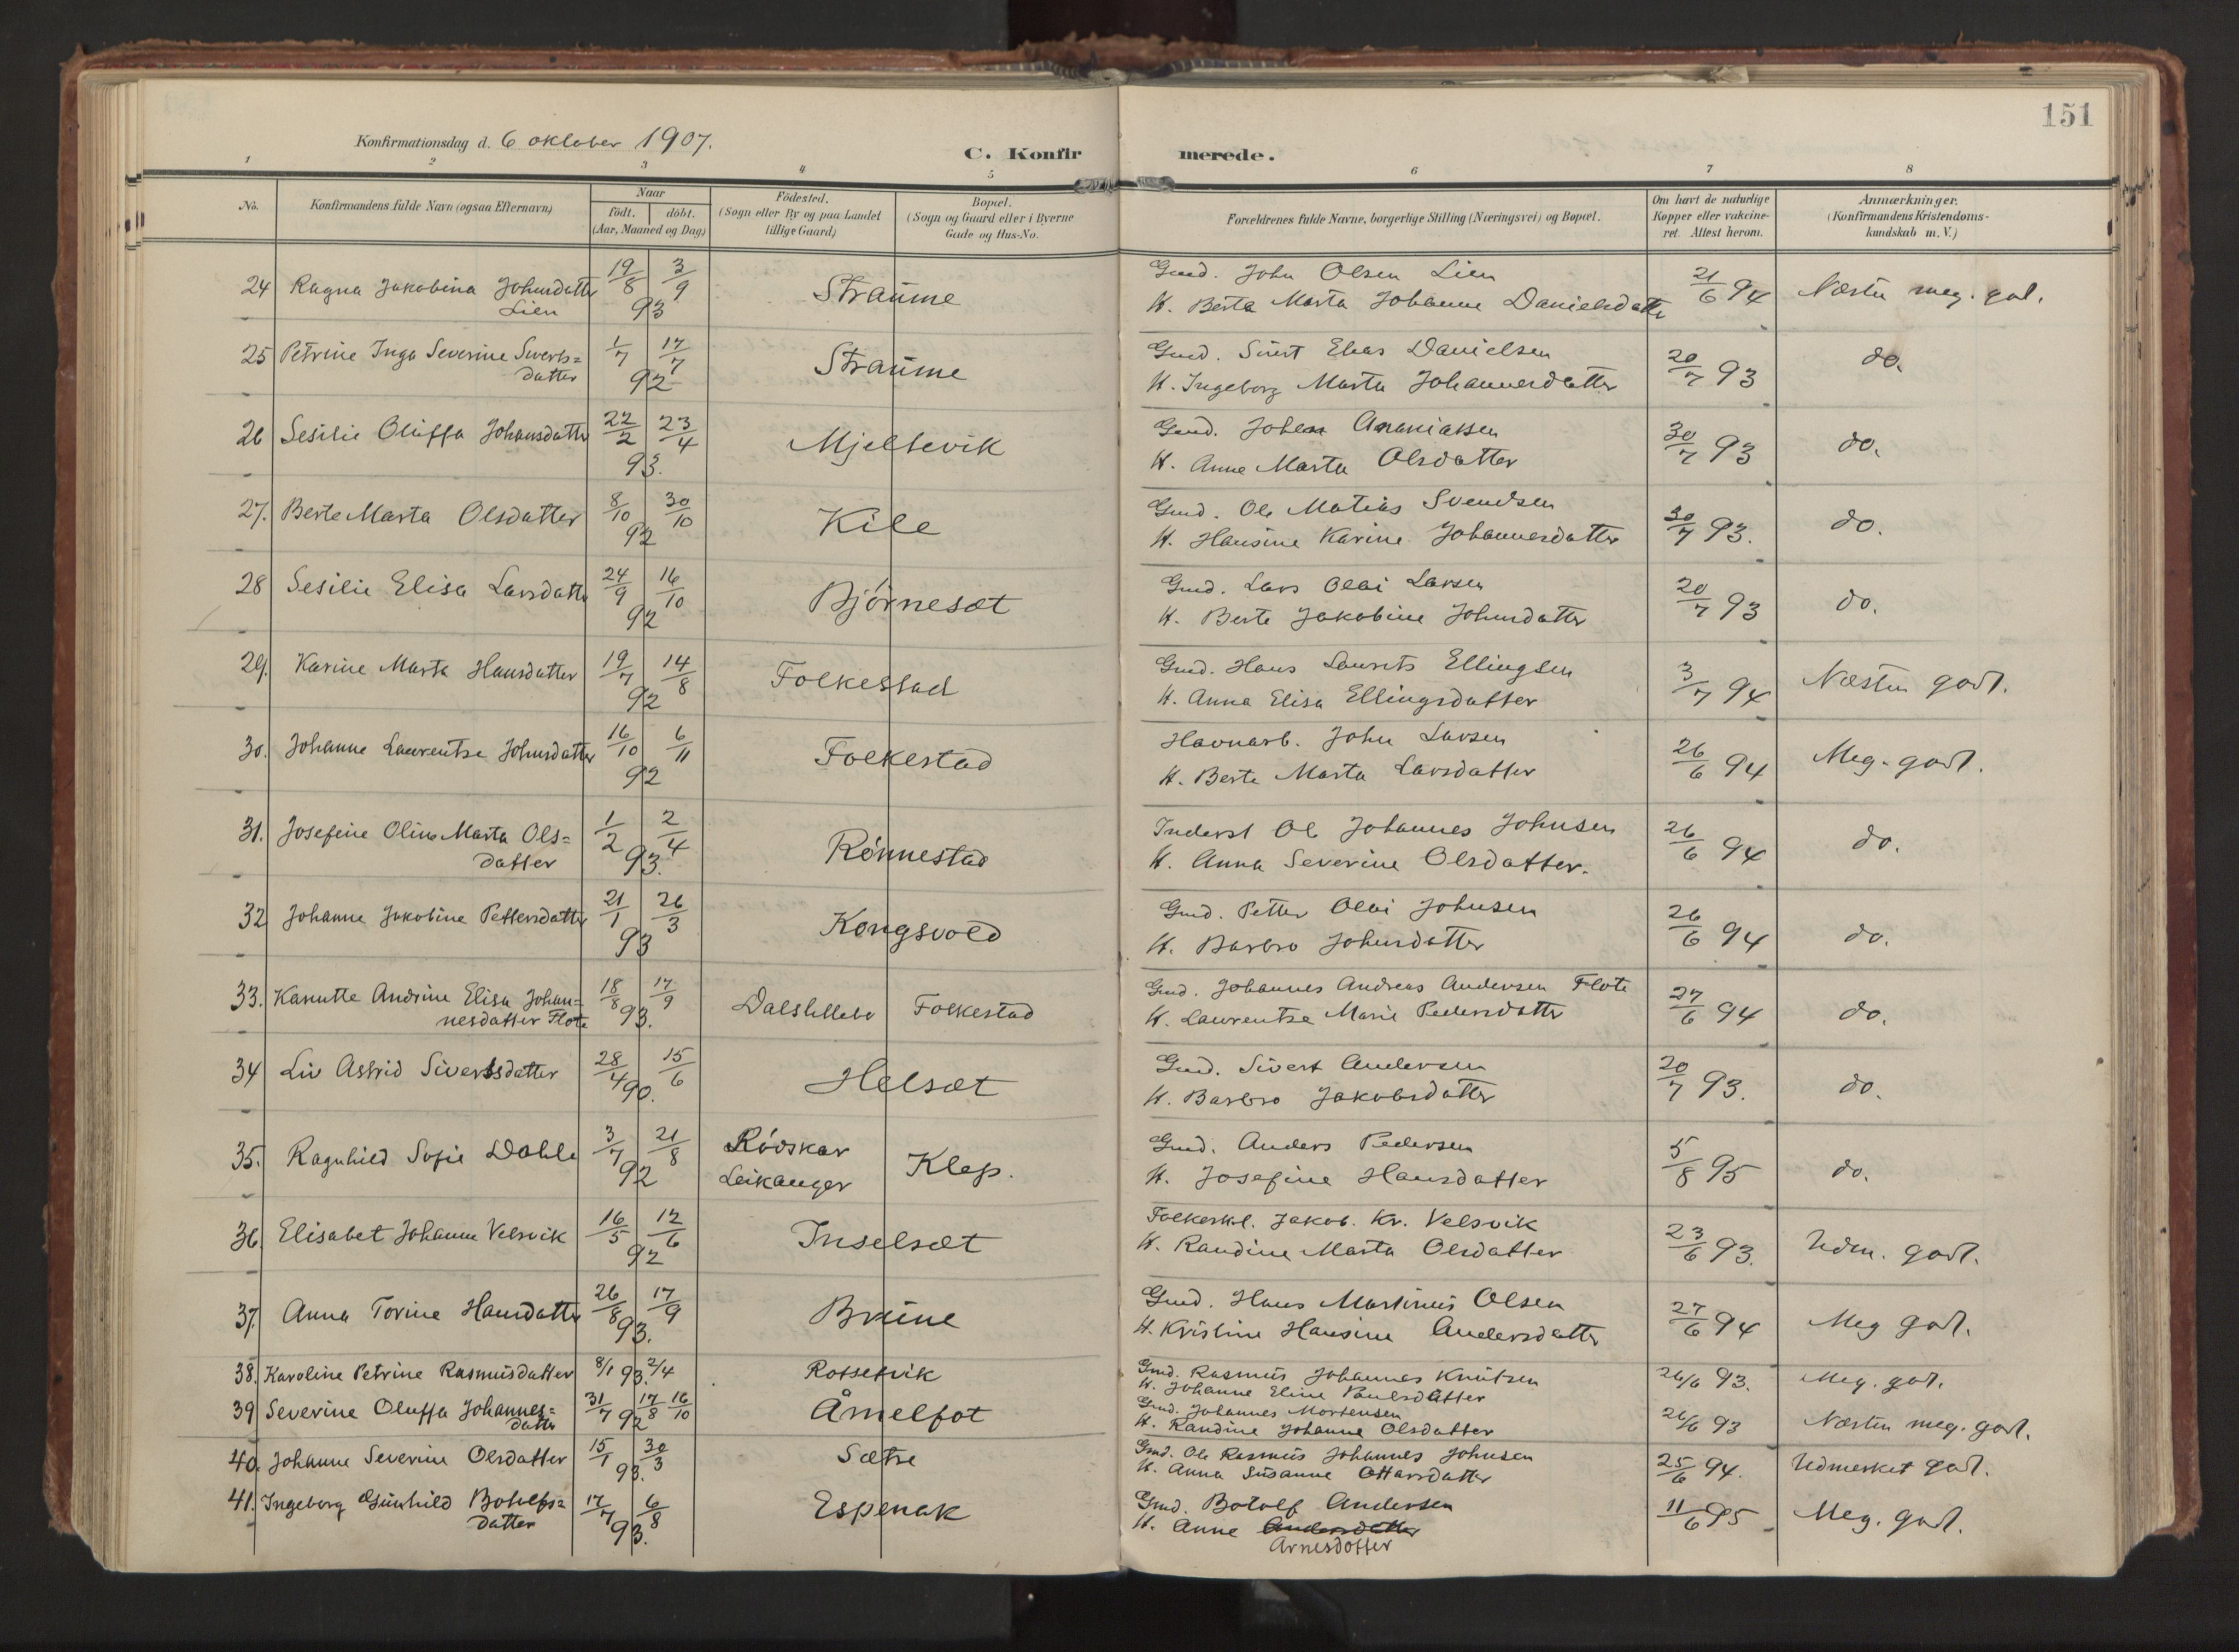 151
Konfirmationsdag d. 6 oktober 1907.
C. Konfirmerede.
1 2 3 4 5 6 7 8
No. Konfirmandens fulde Navn (ogsaa Efternavn) Naar født. døbt. (Aar, Maaned og Dag) Fødested. (Sogn eller By og paa Landet tillige Gaard) Bopæl. (Sogn og Gaard eller i Byerne Gade og Hus-No. Forældrenes fulde Navne, borgerlige Stilling (Næringsvei) og Bopæl. Om havt de naturlige Kopper eller vakcineret. Attest herom. Anmærkninger. (Konfirmandens Kristendomskundskab m. V.)
24 Ragna Jakobina Johnsdatter 19/8 3/9 Straume Gmd. John Olsen Lien 21/6 94 Næsten meg. godt.
Lien 93 H. Berta Marta Johanne Danielsdatter
25 Petrine Inga Severine Siverts= 1/7 17/7 Straume Gmd. Sivert Elias Danielsen 20/7 93 do.
datter 92 H. Ingeborg Marta Johannesdatter
26 Sesilie Oluffa Johansdatter 22/2 23/4 Mjeltevik Gmd. Johan Ananiassen 30/7 93 do.
93. H. Anne Marta Olsdatter
27. Berte Marta Olsdatter 8/10 30/10 Kile Gmd. Ole Matias Svendsen 30/7 93. do.
92 H. Hansine Karine Johannesdatter
28 Sesilie Elisa Larsdatter 24/9 16/10 Bjørneset Gmd. Lars Olai Larsen 20/7 93 do.
92 H. Berte Jakobine Johnsdatter
29. Karine Marta Hansdatter 19/7 14/8 Folkestad Gmd. Hans Laurits Ellingsen 3/7 94 Næsten godt.
92 H. Anna Elisa Ellingsdatter
30. Johanne Laurentse Johnsdatter 16/10 6/11 Folkestad Havnarb. John Larsen 26/6 94 Meg. godt.
92 H. Berte Marta Larsdatter
31. Josefine Oline Marta Ols= 1/2 2/4 Rønnestad Inderst Ole Johannes Johnsen 26/6 94 do.
datter 93. H. Anna Severine Olsdatter.
32 Johanne Jakobine Pettersdatter 21/1 26/3 Kongsvold Gmd. Petter Olai Johnsen 26/6 94 do.
93 H. Barbro Johnsdatter
33. Kanutte Andrine Elisa Johan= 18/8 17/9 Folkestad Gmd. Johannes Andreas Andersen Flote 27/6 94 do.
nesdatter Flote 93. H. Laurentse Marie Pedersdatter
34 Liv Astrid Sivertsdatter 28/4 15/6 Helset Gmd. Sivert Andersen 20/7 93. do.
90. H. Barbro Jakobsdatter
35. Ragnhild Sofie Dahle 3/7 21/8 Rødskar Klep. Gmd. Anders Pedersen 5/8 95 do.
92 Leikanger H. Josefine Hansdatter
36. Elisabet Johanne Velsvik 16/5 12/6 Inselset Folkeskl. Jakob. Kr. Velsvik 23/6 93. Udm. godt.
92 H. Randine Marta Olsdatter
37. Anna Torine Hansdatter 26/8 17/9 Brune Gmd. Hans Martinus Olsen 27/6 94 Meg godt.
93. H. Kristine Hansine Andersdatter
38. Karoline Petrine Rasmusdatter 8/1 93. 2/4 Rotsetvik Gmd. Rasmus Johannes Knutsen 26/6 93. Meg. godt.
H. Johanne Eline Paulsdatter
39 Severine Oluffa Johannes= 31/7 17/8 16/10 Åmelfot Gmd. Johannes Mortensen 26/6 93 Næsten meg. godt.
datter 92 H. Randine Johanne Olsdatter
40. Johanne Severine Olsdatter 15/1 30/3 Sætre Gmd. Ole Rasmus Johannes Johnsen 25/6 94. Udmerket godt.
93. H. Anna Susanne Ottarsdatter
41. Ingeborg Gunhild Botolfs= 17/7 6/8 Espenak Gmd. Botolf Andersen 11/6 95 Meg. godt.
datter 93. H. Anne Andersdatter
Arnesdotter